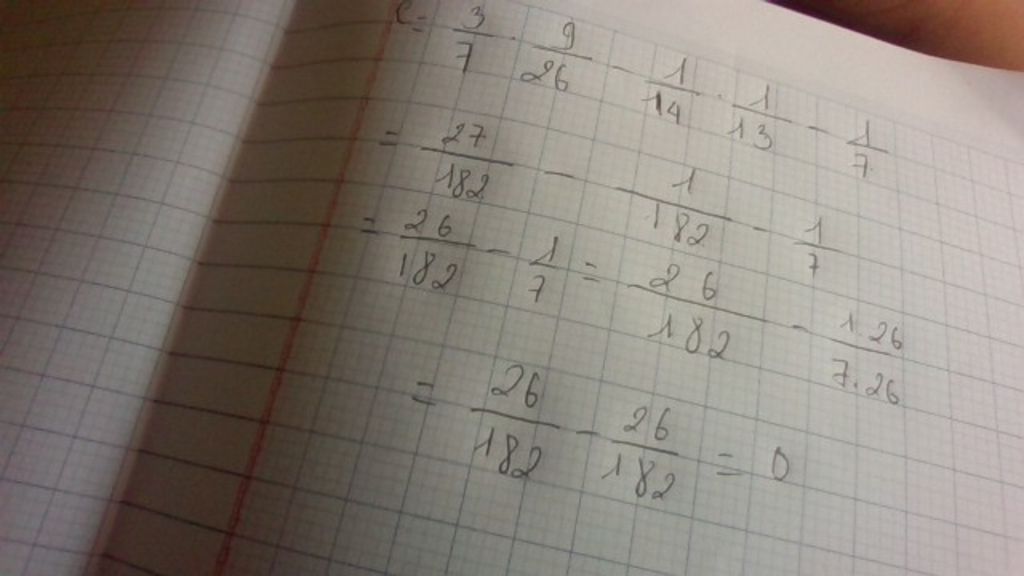 C = 3/7 · 9/26 - 1/14 · 1/13 - 1/7
= 27/182 - 1/182 - 1/7
= 26/182 - 1/7 = 26/182 - 1.26/7.26
= 26/182 - 26/182 = 0